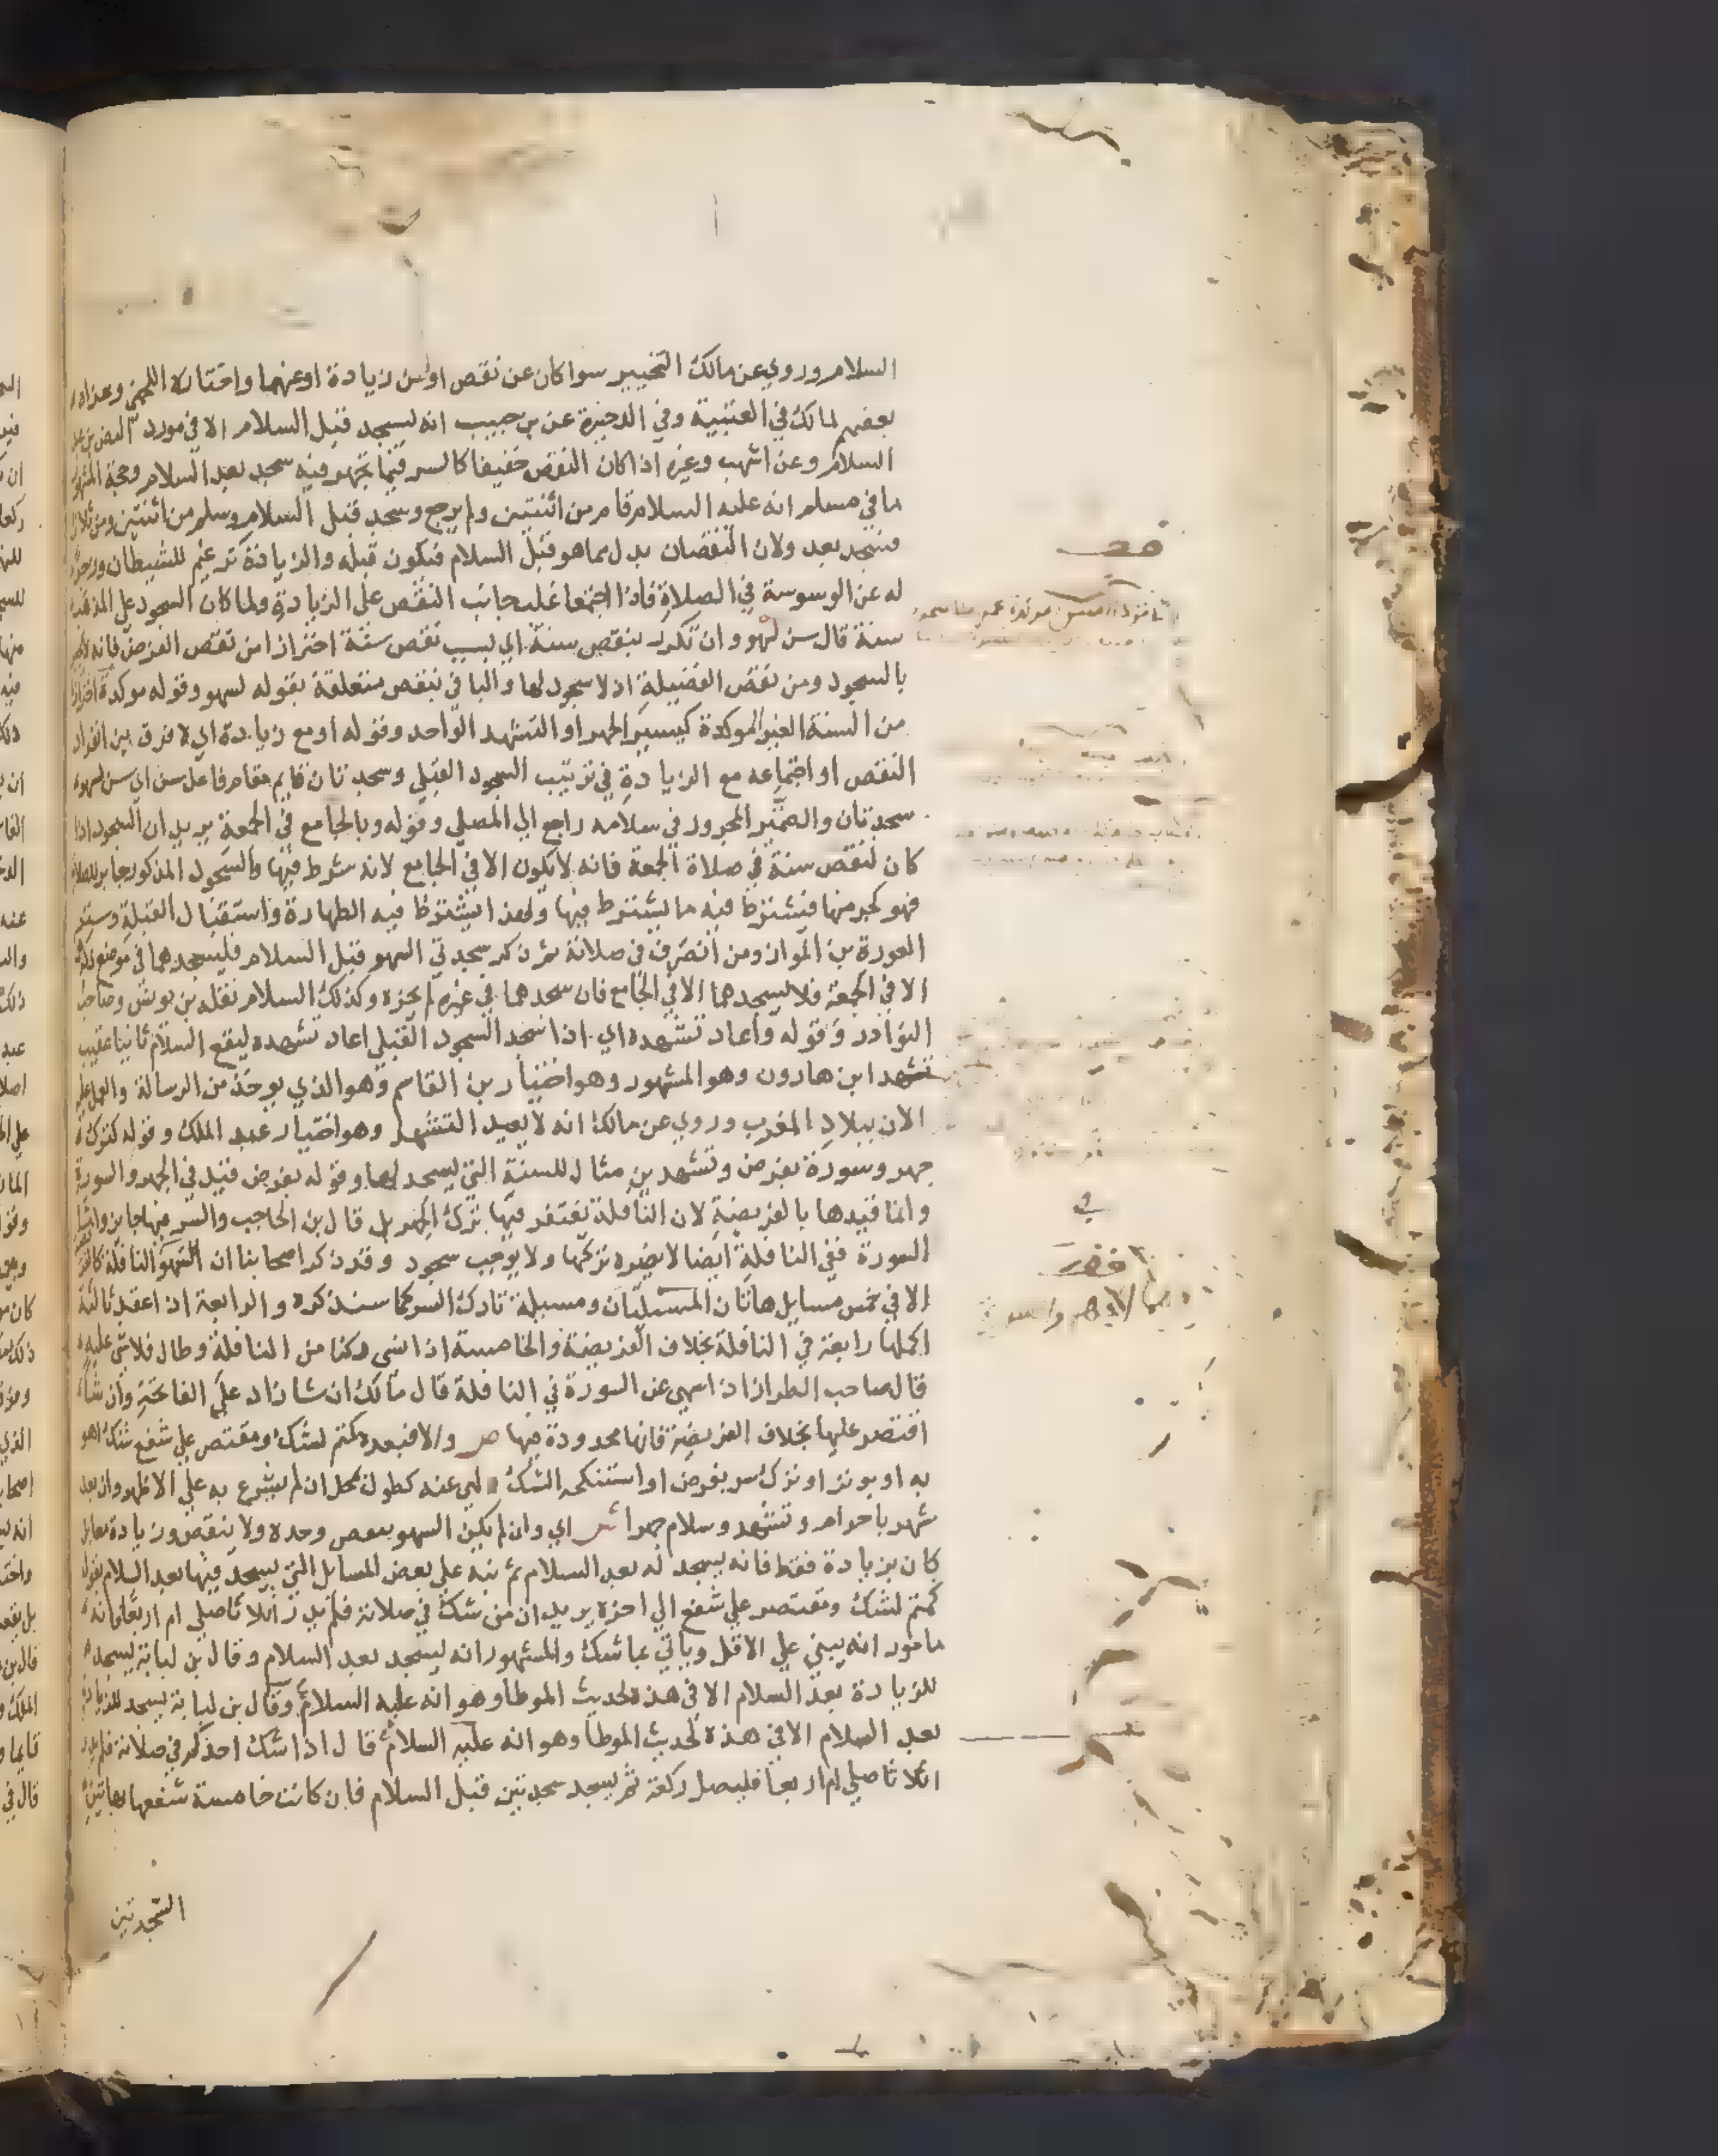 السلام وروي عن مالك التخيير سوا كان عن نقص اوعن زيادة اوعنهما واختاره اللخمي وعزاه
بعضهم لمالك في العتبية وفي الدخيرة عن بن حبيب انه يسجد قبل السلام الا في مورد النص من بعد
السلام وعن اشهب وغيره اذا كان النقص خفيفا كالسر فيما يجهر فيه سجد بعد السلام وحجة المشهور
ما في مسلم انه عليه السلام قام من اثنتين ولم يرجع وسجد قبل السلام وسلم من اثنتين ومن ثلاث
فسجد بعد ولان النقصان بدل مما هو قبل السلام فيكون قبله والزيادة ترغيم للشيطان وزجرا
له عن الوسوسة في الصلاة فاذا اجتمعا غلب جانب النقص على الزيادة ولما كان السجود على المذهب
سنة قال سن لسهو وان تكرر بنقص سنة اي بسبب نقص سنة احترازا من نقص الفرض فانه لا يجبر
بالسجود ومن نقص الفضيلة اذ لا سجود لها والبا في بنقص متعلقة بقوله لسهو وقوله موكدة احترازا
من السنة الغير الموكدة كيسير الجهر او التشهد الواحد وقوله اومع زيادة اي لا فرق بين انفراد
النقص او اجتماعه مع الزيادة في ترتيب السجود القبلي وسجدتان قايم مقام فاعل سن اي سن لسهوه
سجدتان والضمير المجرور في سلامه راجع الي المصلي وقوله وبالجامع في الجمعة يريد ان السجود اذا
كان لنقص سنة في صلاة الجمعة فانه لا يكون الا في الجامع لانه شرط فيها والسجود المذكور جابر للصلاة
فهو كجزء منها فيشترط فيه ما يشترط فيها ولهذا يشترط فيه الطهارة واستقبال القبلة وستر
العورة بن المواز ومن انصرف في صلاته ثم ذكر سجدتي السهو قبل السلام فليسجدهما في موضع ذكره
الا في الجمعة فلا يسجدهما الا في الجامع فان سجدهما في غيره لم يجزه وكذلك السلام نقله بن يونس وصاحب
النوادر وقوله واعاد تشهده اي اذا سجد السجود القبلي اعاد تشهده ليقع السلام ثانيا عقيب
تشهد ابن هارون وهو المشهور وهو اختيار بن القاسم وهو الذي يوخذ من الرسالة والعمل عليه
الان ببلاد المغرب وروي عن مالك انه لا يعيد التشهد وهو اختيار عبد الملك وقوله كترك
جهر وسورة بفرض وتشهدين مثال للسنة التي يسجد لها وقوله بفرض قيد في الجهر والسورة
وانما قيدها بالفريضة لان النافلة يغتفر فيها ترك الجهر بل قال بن الحاجب والسر فيها جايز واما
السورة ففي النافلة ايضا لا يضره تركها ولا يوجب سجود وقد ذكر اصحابنا ان السهو في النافلة كالفرض
الا في خمس مسايل هاتان المسيلتان ومسيلة تارك السر كما سنذكره والرابعة اذا عقد ثالثة
اكملها رابعة في النافلة بخلاف الفريضة والخامسة اذا نسي ركنا من النافلة وطال فلا شي عليه
قال صاحب الطراز اذا سهي عن السورة في النافلة قال مالك ان شا زاد علي الفاتحة وان شا
اقتصر عليها بخلاف الفريضة فانها محدودة فيها ص والا فبعده كمتم لشك ومقتصر علي شفع شك اهو
به او بوتر او ترك سر بفرض او استنكحه الشك لهي عنه كطول بمحل ان لم يشرع به علي الاظهر وان بعد
شهر باحرام وتشهد وسلام جهرا ش اي وان لم يكن السهو بنقص وحده ولا بنقص وزيادة بل
كان بزيادة فقط فانه يسجد له بعد السلام ثم نبه علي بعض المسايل التي يسجد فيها بعد السلام بقوله
كمتم لشك ومقتصر علي شفع الي اخره يريد ان من شك في صلاته فلم يدر اثلاثا صلي ام اربعا فانه
مامور انه يبني علي الاقل وياتي بما شك والمشهور انه يسجد بعد السلام وقال بن لبابة يسجد
للزيادة بعد السلام الا في هذه لحديث الموطا وهو انه عليه السلام وقال بن لبابة يسجد للزيادة
بعد السلام الا في هذه لحديث الموطا وهو انه عليه السلام قال اذا شك احدكم في صلاته فلم يدر
اثلاثا صلي ام اربعا فليصل ركعة ثم يسجد سجدتين قبل السلام فان كانت خامسة شفعها بهاتين
السجدتين